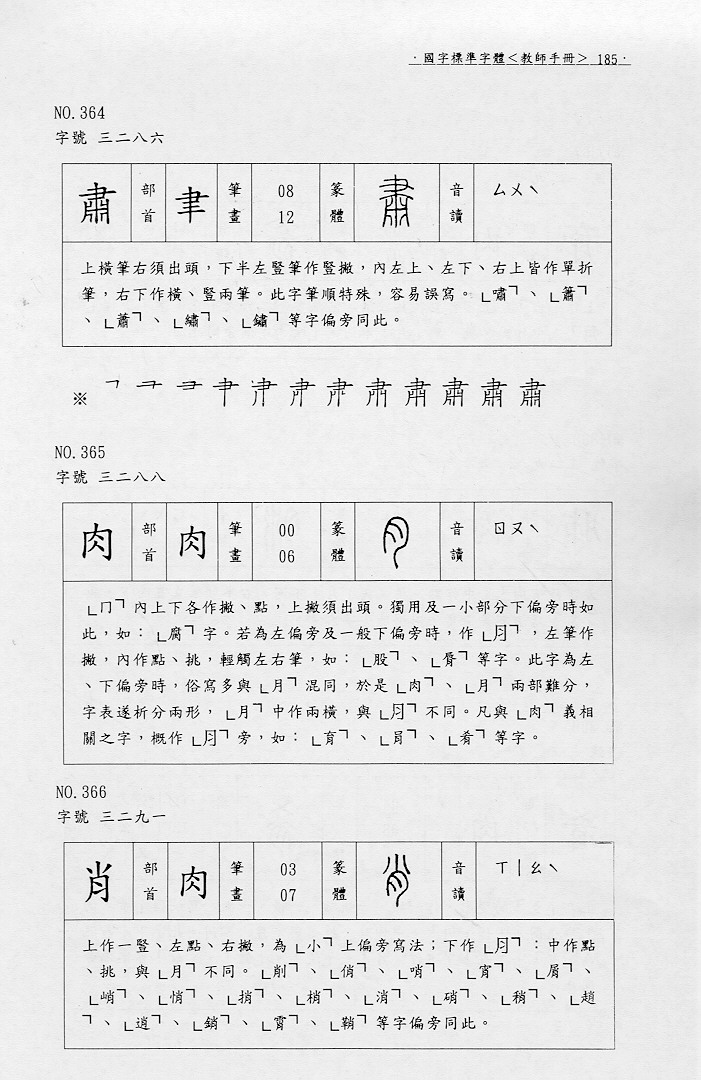 ·國字標準字體<教師手冊> 185·
NO.364
字號 三二八六
肅 部首 聿 筆畫 08 12 篆體 肅 音讀 ㄙㄨˋ
上橫筆右須出頭,下半左豎筆作豎撇,內左上、左下、右上皆作單折
筆,右下作橫、豎兩筆。此字筆順特殊,容易誤寫。「嘯」、「簫」
、「蕭」、「繡」、「鏽」等字偏旁同此。
※
NO.365
字號 三二八八
肉 部首 肉 筆畫 00 06 篆體 音讀 ㄖㄡˋ
「冂」內上下各作撇、點,上撇須出頭。獨用及一小部分下偏旁時如
此,如:「腐」字。若為左偏旁及一般下偏旁時,作「⺼」,左筆作
撇,內作點、挑,輕觸左右筆,如:「股」、「脣」等字。此字為左
、下偏旁時,俗寫多與「月」混同,於是「肉」、「月」兩部難分,
字表遂析分兩形,「月」中作兩橫,與「⺼」不同。凡與「肉」義相
關之字,概作「⺼」旁,如:「育」、「肙」、「肴」等字。
NO.366
字號 三二九一
肖 部首 肉 筆畫 03 07 篆體 肖 音讀 ㄒㄧㄠˋ
上作一豎、左點、右撇,為「小」上偏旁寫法;下作「⺼」:中作點
、挑,與「月」不同。「削」、「俏」、「哨」、「宵」、「屑」、
「峭」、「悄」、「捎」、「梢」、「消」、「硝」、「稍」、「趙
」、「逍」、「銷」、「霄」、「鞘」等字偏旁同此。